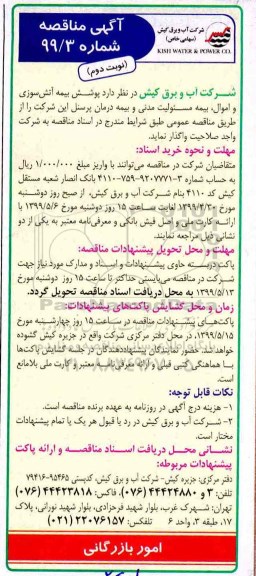 شرکت آب و برق کیش
(سهامی خاص)
KISH WATER & POWER CO.
آگهی مناقصه
شماره ۹۹/۳
(نوبت دوم)
شرکت آب و برق کیش در نظر دارد پوشش بیمه آتش‌سوزی
و اموال، بیمه مسئولیت مدنی و بیمه درمان پرسنل این شرکت را از
طریق مناقصه عمومی طبق شرایط مندرج در اسناد مناقصه به شرکت
واجد صلاحیت واگذار نماید.
مهلت و نحوه خرید اسناد:
متقاضیان شرکت در مناقصه می‌توانند با واریز مبلغ ۱/۰۰۰/۰۰۰ ریال
به حساب شماره ۳-۹۲۰۷۷۷۱-۷۵۹-۴۱۱۰ بانک انصار شعبه مستقل
کیش کد ۴۱۱۰ بنام شرکت آب و برق کیش، از صبح روز دوشنبه
مورخ لغایت ساعت ۱۵ روز دوشنبه مورخ ۱۳۹۹/۵/۶ با
ارائه کارت اصل فیش بانکی و معرفی‌نامه معتبر به یکی از دو
نشانی ذیل مراجعه نمایند.
مهلت و محل تحویل پیشنهادات مناقصه:
پاکت حاوی پیشنهادات و اسناد و مدارک مورد نیاز جهت
شرکت در مناقصه می‌بایستی حداکثر تا ساعت ۱۵ روز دوشنبه مورخ
۱۳۹۹/۵/۱۳ به محل دریافت اسناد مناقصه تحویل گردد.
زمان و محل گشایش پاکت‌های پیشنهادات:
پاکت‌های پیشنهادات مناقصه در ساعت ۱۵ روز چهارشنبه مورخ
۱۳۹۹/۵/۱۵، در محل دفتر مرکزی شرکت واقع در جزیره کیش گشوده
خواهد شد. حضور نمایندگان پیشنهاددهندگان در جلسه گشایش پاکت‌ها
با هماهنگی کتبی قبلی و ارائه معرفی‌نامه معتبر و کارت ملی بلامانع
است.
نکات قابل توجه:
۱- هزینه درج آگهی در روزنامه به عهده برنده مناقصه است.
۲- شرکت آب و برق کیش در رد یا قبول هر یک یا تمام پیشنهادات
مختار است.
نشانی محل دریافت اسناد مناقصه و ارائه پاکت
پیشنهادات مربوطه:
دفتر مرکزی: جزیره کیش- شرکت آب و برق کیش، کدپستی ۹۵۴۶۵-۷۹۴۱۶
تلفن: ۳ و ۴۴۴۲۴۸۸۰ (۰۷۶)، فاکس: ۴۴۴۲۳۸۱۸ (۰۷۶)
تهران: شهرک غرب، بلوار شهید فرحزادی، بلوار شهید نورانی، پلاک
۱۷، طبقه ۳، واحد ۶ تلفکس: ۲۲۰۷۶۱۵۷ (۰۲۱)
امور بازرگانی